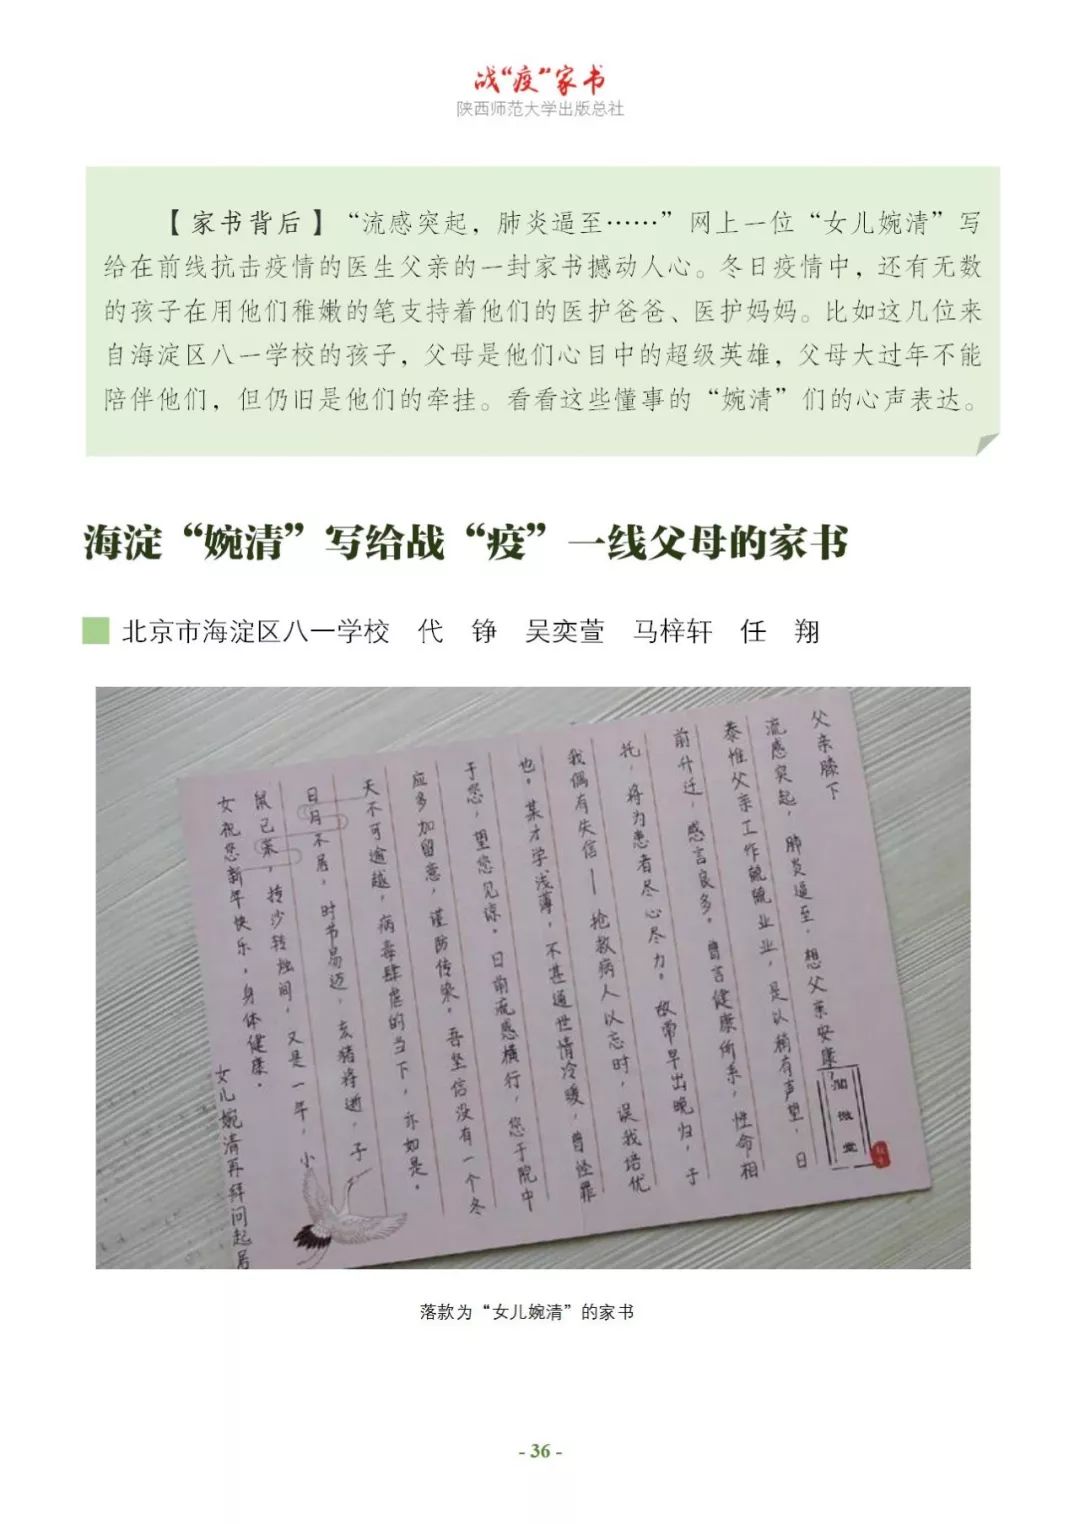 战“疫”家书
陕西师范大学出版总社
【家书背后】“流感突起，肺炎逼至……”网上一位“女儿婉清”写
给在前线抗击疫情的医生父亲的一封家书撼动人心。冬日疫情中，还有无数
的孩子在用他们稚嫩的笔支持着他们的医护爸爸、医护妈妈。比如这几位来
自海淀区八一学校的孩子，父母是他们心目中的超级英雄，父母大过年不能
陪伴他们，但仍旧是他们的牵挂。看看这些懂事的“婉清”们的心声表达。
海淀“婉清”写给战“疫”一线父母的家书
北京市海淀区八一学校 代 铮 吴奕萱 马梓轩 任 翔
父亲膝下
流感突起，肺炎逼至，想父亲安康，
泰惟父亲工作兢兢业业，是以稍有声望，日
前升迁，感言良多。曾言健康所系，性命相
托，将为患者尽心尽力。故常早出晚归，于
我偶有失信——抢救病人以忘时，误我培优
也。某才学浅薄，不甚通世情冷暖，曾怪罪
于您，望您见谅。日前流感横行，您于院中
应多加留意，谨防传染。吾坚信没有一个冬
天不可逾越，病毒肆虐的当下，亦如是。
日月不居，时节易迈，玄猪将逝，子
鼠已来，抟沙转烛间，又是一年，小
女祝您新年快乐，身体健康。
女儿婉清再拜问起居
阅微堂
落款为“女儿婉清”的家书
- 36 -